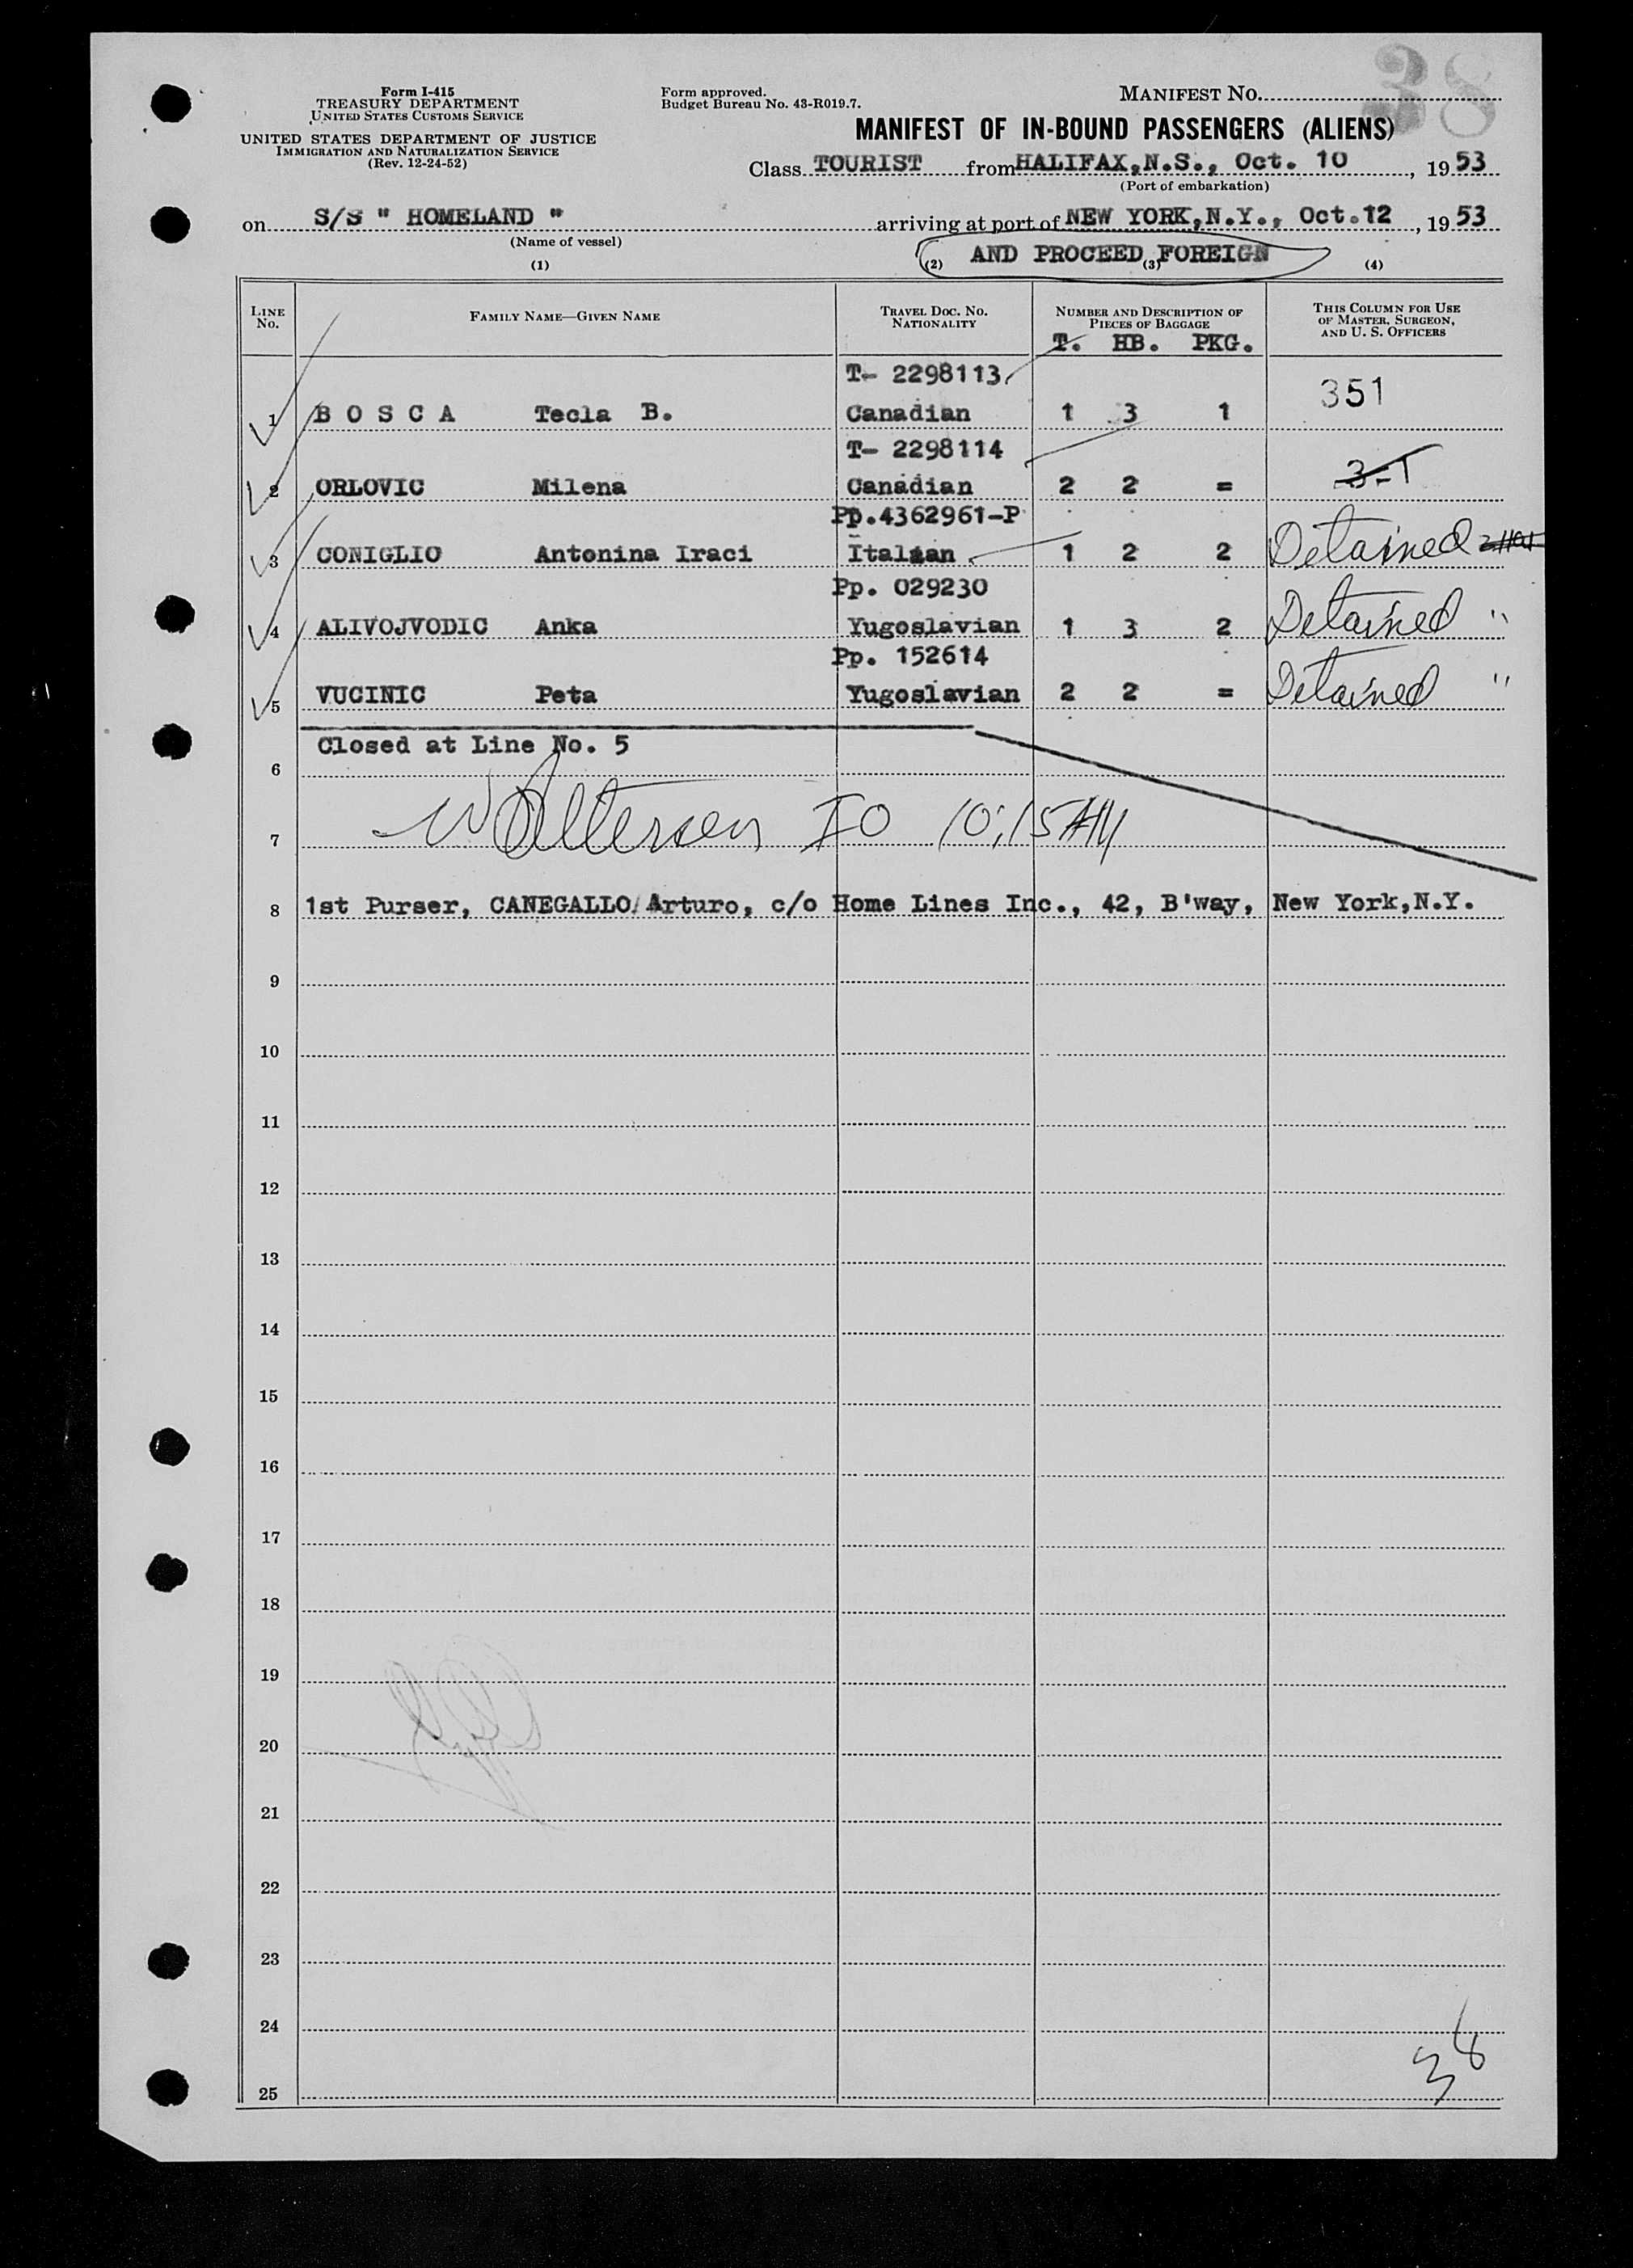 38
Form I-415
TREASURY DEPARTMENT
UNITED STATES CUSTOMS SERVICE
UNITED STATES DEPARTMENT OF JUSTICE
IMMIGRATION AND NATURALIZATION SERVICE
(Rev. 12-24-52)
Form approved.
Budget Bureau No. 43-R019.7.
MANIFEST NO.
MANIFEST OF IN-BOUND PASSENGERS (ALIENS)
Class TOURIST from HALIFAX, N.S., Oct. 10, 1953
(Port of embarkation)
on S/S " HOMELAND " arriving at port of NEW YORK, N.Y., Oct. 12, 1953
(Name of vessel)
AND PROCEED FOREIGN
(1) (2) (3) (4)
LINE No. FAMILY NAME—GIVEN NAME TRAVEL DOC. NO. NATIONALITY NUMBER AND DESCRIPTION OF PIECES OF BAGGAGE THIS COLUMN FOR USE OF MASTER, SURGEON, AND U. S. OFFICERS
T. HB. PKG.
T- 2298113
1 B O S C A Tecla B. Canadian 1 3 1 351
T- 2298114
2 ORLOVIC Milena Canadian 2 2 = 3-1
Pp.4362961-P
3 CONIGLIO Antonina Iraci Italian 1 2 2 Detained
Pp. 029230
4 ALIVOJVODIC Anka Yugoslavian 1 3 2 Detained "
Pp. 152614
5 VUCINIC Peta Yugoslavian 2 2 = Detained "
Closed at Line No. 5
6
7 IO 10:15 AM
8 1st Purser, CANEGALLO Arturo, c/o Home Lines Inc., 42, B'way, New York, N.Y.
9
10
11
12
13
14
15
16
17
18
19
20
21
22
23
24
25
38